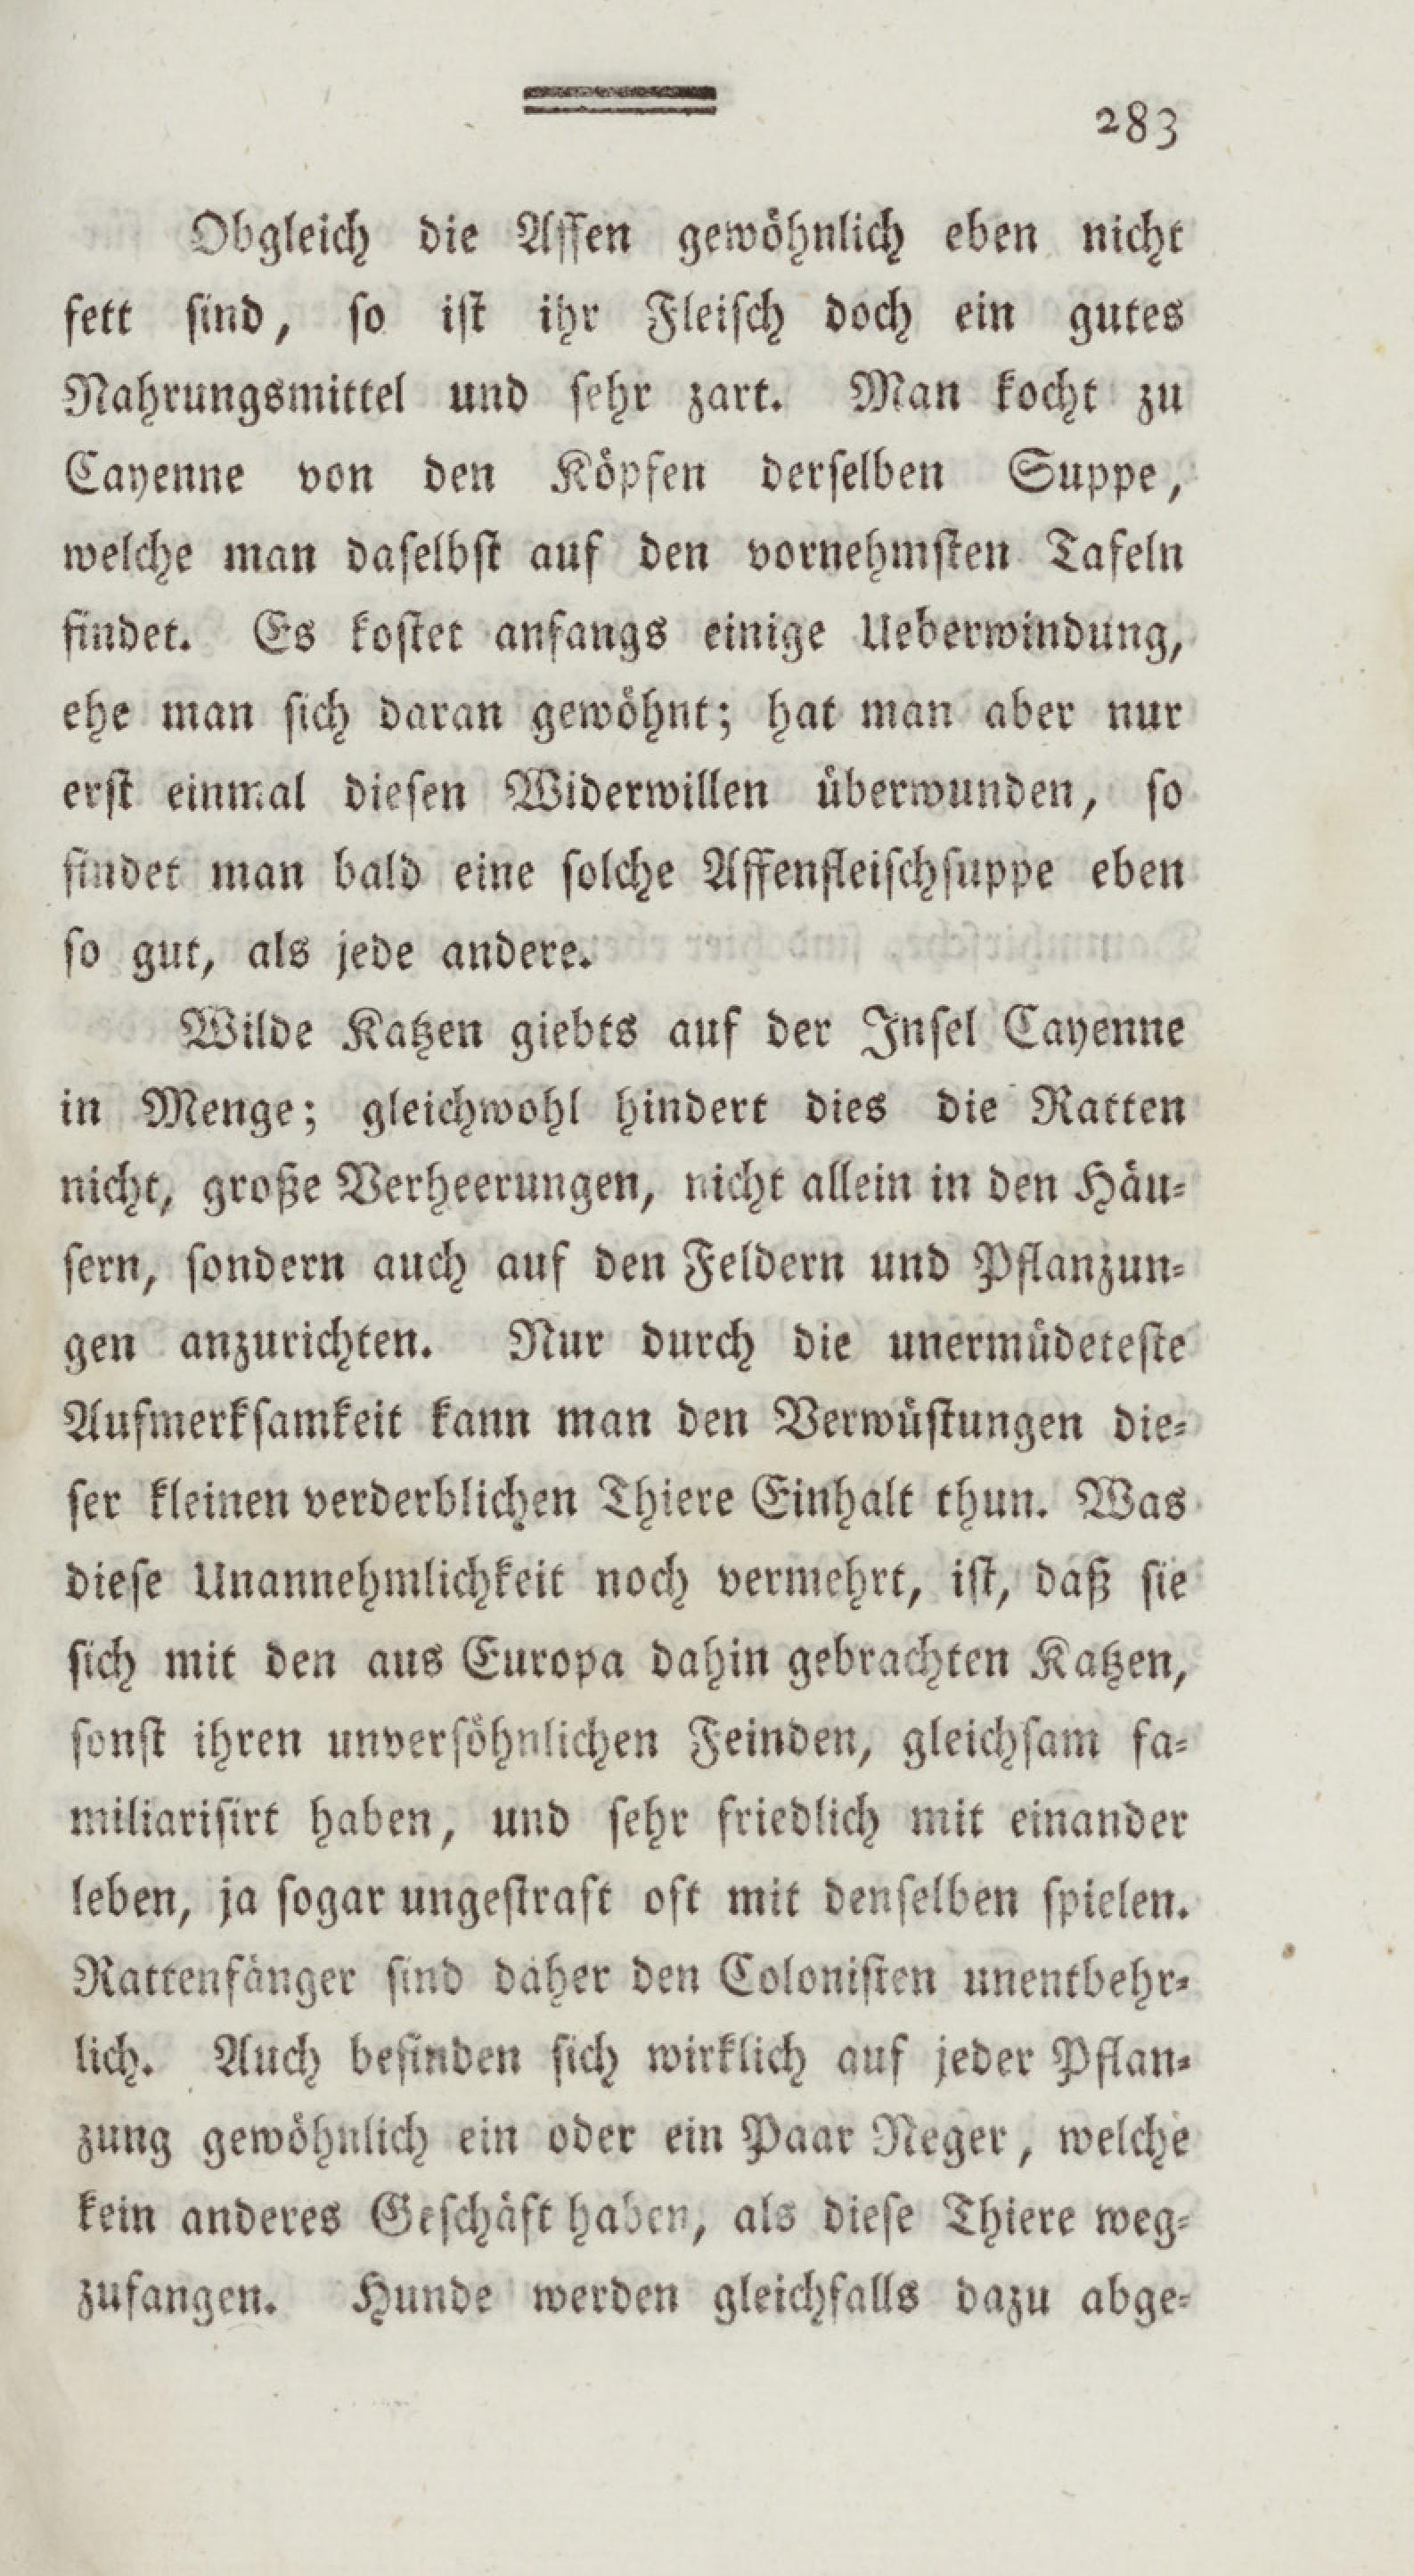 283
Obgleich die Affen gewöhnlich eben nicht
fett sind, so ist ihr Fleisch doch ein gutes
Nahrungsmittel und sehr zart. Man kocht zu
Cayenne von den Köpfen derselben Suppe,
welche man daselbst auf den vornehmsten Tafeln
findet. Es kostet anfangs einige Ueberwindung,
ehe man sich daran gewöhnt; hat man aber nur
erst einmal diesen Widerwillen überwunden, so
findet man bald eine solche Affenfleischsuppe eben
so gut, als jede andere.
Wilde Katzen giebts auf der Insel Cayenne
in Menge; gleichwohl hindert dies die Ratten
nicht, große Verheerungen, nicht allein in den Häu-
sern, sondern auch auf den Feldern und Pflanzun-
gen anzurichten. Nur durch die unermüdeteste
Aufmerksamkeit kann man den Verwüstungen die-
ser kleinen verderblichen Thiere Einhalt thun. Was
diese Unannehmlichkeit noch vermehrt, ist, daß sie
sich mit den aus Europa dahin gebrachten Katzen,
sonst ihren unversöhnlichen Feinden, gleichsam fa-
miliarisirt haben, und sehr friedlich mit einander
leben, ja sogar ungestraft oft mit denselben spielen.
Rattenfänger sind daher den Colonisten unentbehr-
lich. Auch befinden sich wirklich auf jeder Pflan-
zung gewöhnlich ein oder ein Paar Neger, welche
kein anderes Geschäft haben, als diese Thiere weg-
zufangen. Hunde werden gleichfalls dazu abge-